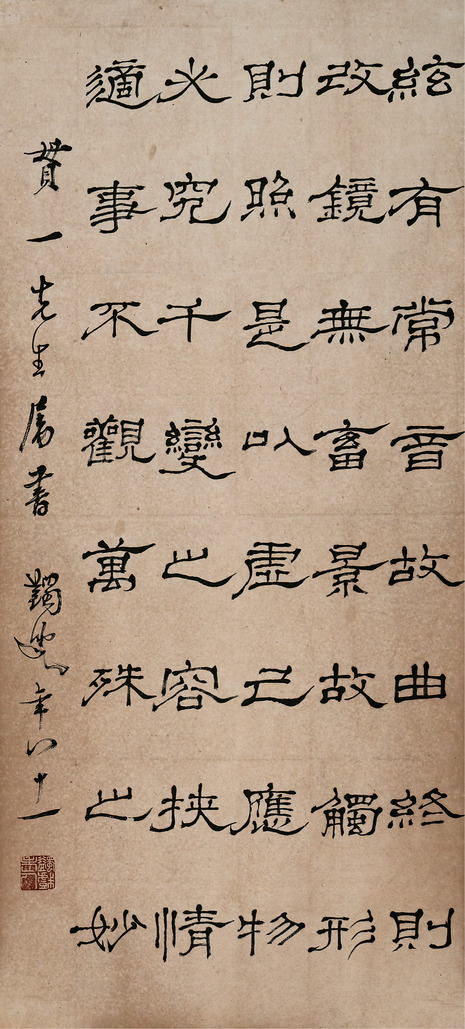 絃有常音故曲終則
改鏡無畜景故觸形
則照是以虛己應物
必究千變之容挾情
適事不觀萬殊之妙
貫一先生屬書 蠲叟年八十一